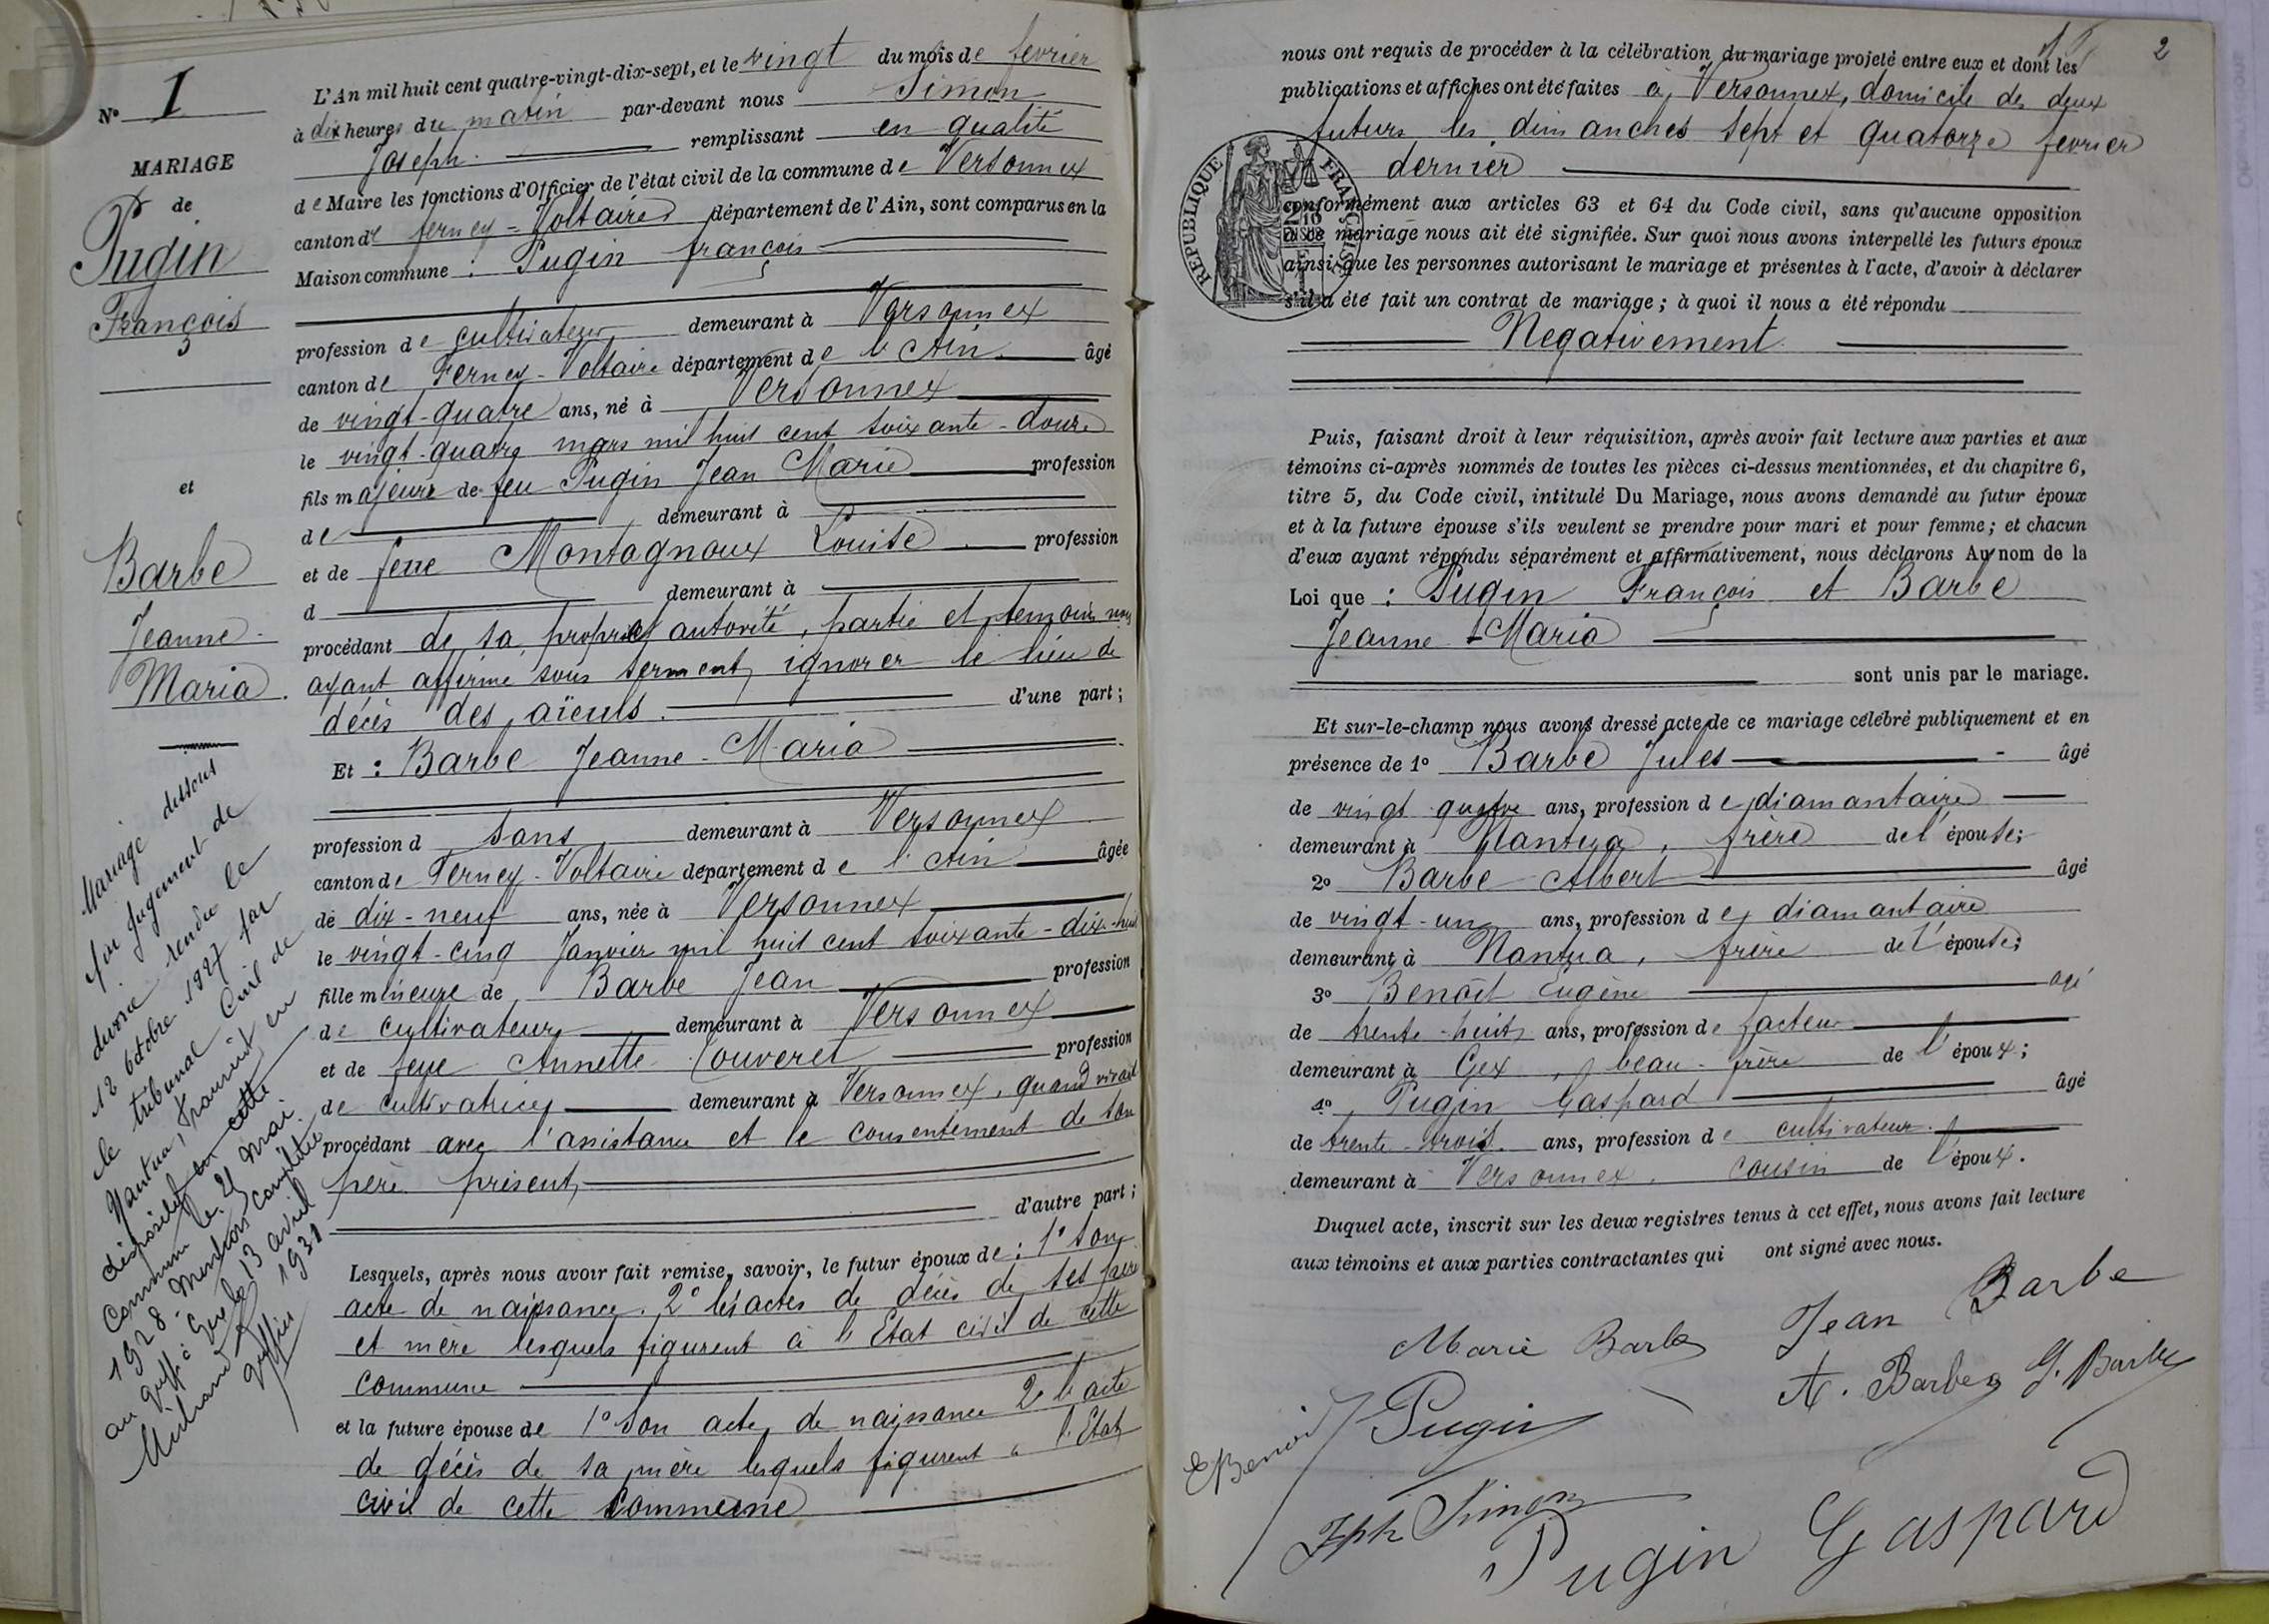 N° 1
MARIAGE
de
Pugin
François
et
Barbe
Jeanne-
Maria.
Mariage dessous
par jugement de
divorce rendu le
12 octobre 1927 par
le tribunal Civil de
Nantua, transcrit en
cette
commune le 21 mai
1928. Mention
au greffe Gex le 13 avril
1931
greffier
L'An mil huit cent quatre-vingt-dix-sept, et le vingt du mois de fevrier
à dix heures du matin par-devant nous Simon
Joseph remplissant en qualité
de Maire les fonctions d'Officier de l'état civil de la commune de Versonnex
canton de ferney-Voltaire département de l'Ain, sont comparus en la
Maison commune : Pugin françois
profession de cultivateur demeurant à Versonnex
canton de Ferney-Voltaire département de l'Ain âgé
de vingt-quatre ans, né à Versonnex
le vingt-quatre mars mil huit cent soixante-douze
fils majeure de feu Pugin Jean Marie profession
de demeurant à
et de feue Montagnoux Louise profession
d demeurant à
procédant de sa propre autorité, partie et temoins nous
ayant affirmé sous serment, ignorer le lieu de
décès des aïeuls. d'une part;
Et : Barbe Jeanne-Maria
profession d sans demeurant à Versonnex
canton de Ferney-Voltaire département de l'Ain âgée
de dix-neuf ans, née à Versonnex
le vingt-cinq Janvier mil huit cent soixante-dix-huit
fille mineure de Barbe Jean profession
de cultivateur demeurant à Versonnex
et de feue Annette Couveret profession
de cultivatrice demeurant à Versonnex, quand vivait
procédant avec l'assistance et le consentement de son
père présent, d'autre part;
Lesquels, après nous avoir fait remise, savoir, le futur époux de : 1° son
acte de naissance. 2° les actes de décès de ses père
et mère lesquels figurent à l'Etat civil de cette
commune
et la future épouse de 1° son acte de naissance 2° l'acte
de décès de sa mère lesquels figurent à l'Etat
civil de cette commune
2
nous ont requis de procéder à la célébration du mariage projeté entre eux et dont les
publications et affiches ont été faites à Versonnex, domicile des deux
futurs les dimanches sept et quatorze fevrier
dernier
REPUBLIQUE FRANÇAISE
conformément aux articles 63 et 64 du Code civil, sans qu'aucune opposition
à ce mariage nous ait été signifiée. Sur quoi nous avons interpellé les futurs époux
ainsi que les personnes autorisant le mariage et présentes à l'acte, d'avoir à déclarer
s'il a été fait un contrat de mariage ; à quoi il nous a été répondu
Negativement
Puis, faisant droit à leur réquisition, après avoir fait lecture aux parties et aux
témoins ci-après nommés de toutes les pièces ci-dessus mentionnées, et du chapitre 6,
titre 5, du Code civil, intitulé Du Mariage, nous avons demandé au futur époux
et à la future épouse s'ils veulent se prendre pour mari et pour femme ; et chacun
d'eux ayant répondu séparément et affirmativement, nous déclarons Au nom de la
Loi que : Pugin François et Barbe
Jeanne-Maria
sont unis par le mariage.
Et sur-le-champ nous avons dressé acte de ce mariage célébré publiquement et en
présence de 1° Barbe Jules âgé
de vingt quatre ans, profession de diamantaire
demeurant à Nantua, frère de l'épouse;
2° Barbe Albert âgé
de vingt-un ans, profession de diamantaire
demeurant à Nantua, frère de l'épouse;
3° Benoît Eugène agé
de trente-huit ans, profession de facteur
demeurant à Gex, beau-frère de l'époux;
4° Pugin Gaspard âgé
de trente-trois ans, profession de cultivateur
demeurant à Versonnex, cousin de l'époux.
Duquel acte, inscrit sur les deux registres tenus à cet effet, nous avons fait lecture
aux témoins et aux parties contractantes qui ont signé avec nous.
Marie Barbe Jean Barbe
A. Barbe J. Barbe
EBenoit Pugin
Jph Simon
Pugin Gaspard